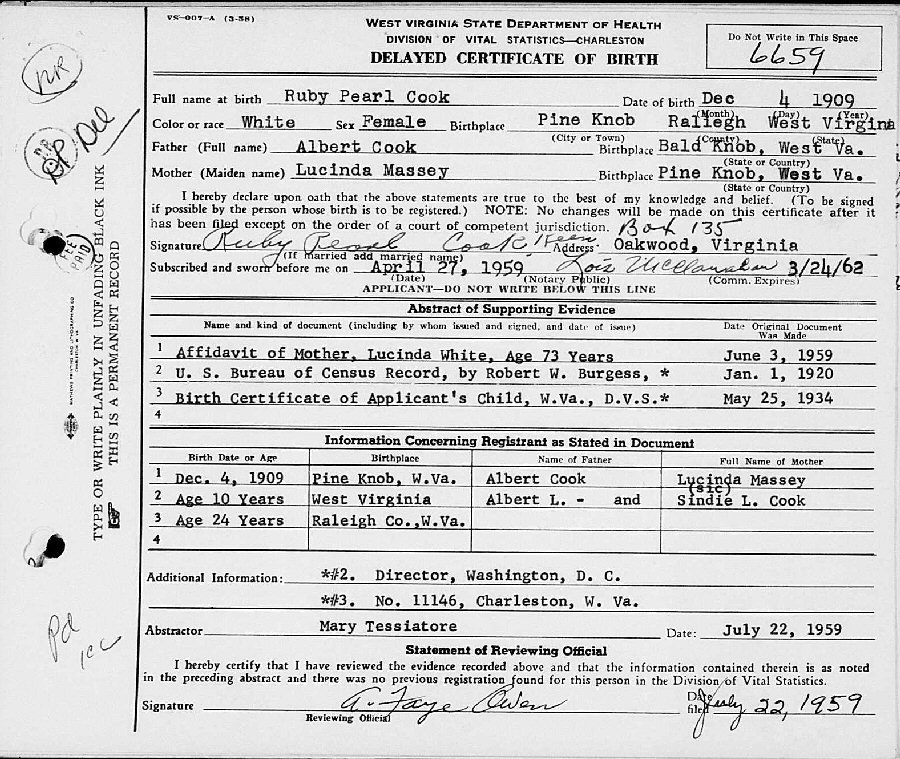 VS-007-A (3-58)
WEST VIRGINIA STATE DEPARTMENT OF HEALTH
DIVISION OF VITAL STATISTICS—CHARLESTON
DELAYED CERTIFICATE OF BIRTH
Do Not Write in This Space
6659
Full name at birth Ruby Pearl Cook Date of birth Dec 4 1909
(Month) (Day) (Year)
Color or race White Sex Female Birthplace Pine Knob Raliegh West Virgina
(City or Town) (County) (State)
Father (Full name) Albert Cook Birthplace Bald Knob, West Va.
(State or Country)
Mother (Maiden name) Lucinda Massey Birthplace Pine Knob, West Va.
(State or Country)
I hereby declare upon oath that the above statements are true to the best of my knowledge and belief. (To be signed
if possible by the person whose birth is to be registered.) NOTE: No changes will be made on this certificate after it
has been filed except on the order of a court of competent jurisdiction. Box 135
Signature Ruby Pearl Cook Keen Address Oakwood, Virginia
(If married add married name)
Subscribed and sworn before me on April 27, 1959 Lois 3/24/62
(Date) (Notary Public) (Comm. Expires)
APPLICANT—DO NOT WRITE BELOW THIS LINE
Abstract of Supporting Evidence
Name and kind of document (including by whom issued and signed, and date of issue) Date Original Document
Was Made
1 Affidavit of Mother, Lucinda White, Age 73 Years June 3, 1959
2 U. S. Bureau of Census Record, by Robert W. Burgess, * Jan. 1, 1920
3 Birth Certificate of Applicant's Child, W.Va., D.V.S.* May 25, 1934
4
Information Concerning Registrant as Stated in Document
Birth Date or Age Birthplace Name of Father Full Name of Mother
1 Dec. 4, 1909 Pine Knob, W.Va. Albert Cook Lucinda Massey
(sic)
2 Age 10 Years West Virginia Albert L. - and Sindie L. Cook
3 Age 24 Years Raleigh Co.,W.Va.
4
Additional Information: *#2. Director, Washington, D. C.
*#3. No. 11146, Charleston, W. Va.
Abstractor Mary Tessiatore Date: July 22, 1959
Statement of Reviewing Official
I hereby certify that I have reviewed the evidence recorded above and that the information contained therein is as noted
in the preceding abstract and there was no previous registration found for this person in the Division of Vital Statistics.
Signature A. Faye Owen Date
filed July 22, 1959
Reviewing Official
TYPE OR WRITE PLAINLY IN UNFADING BLACK INK
THIS IS A PERMANENT RECORD
FEE
PAID
Del
Pd